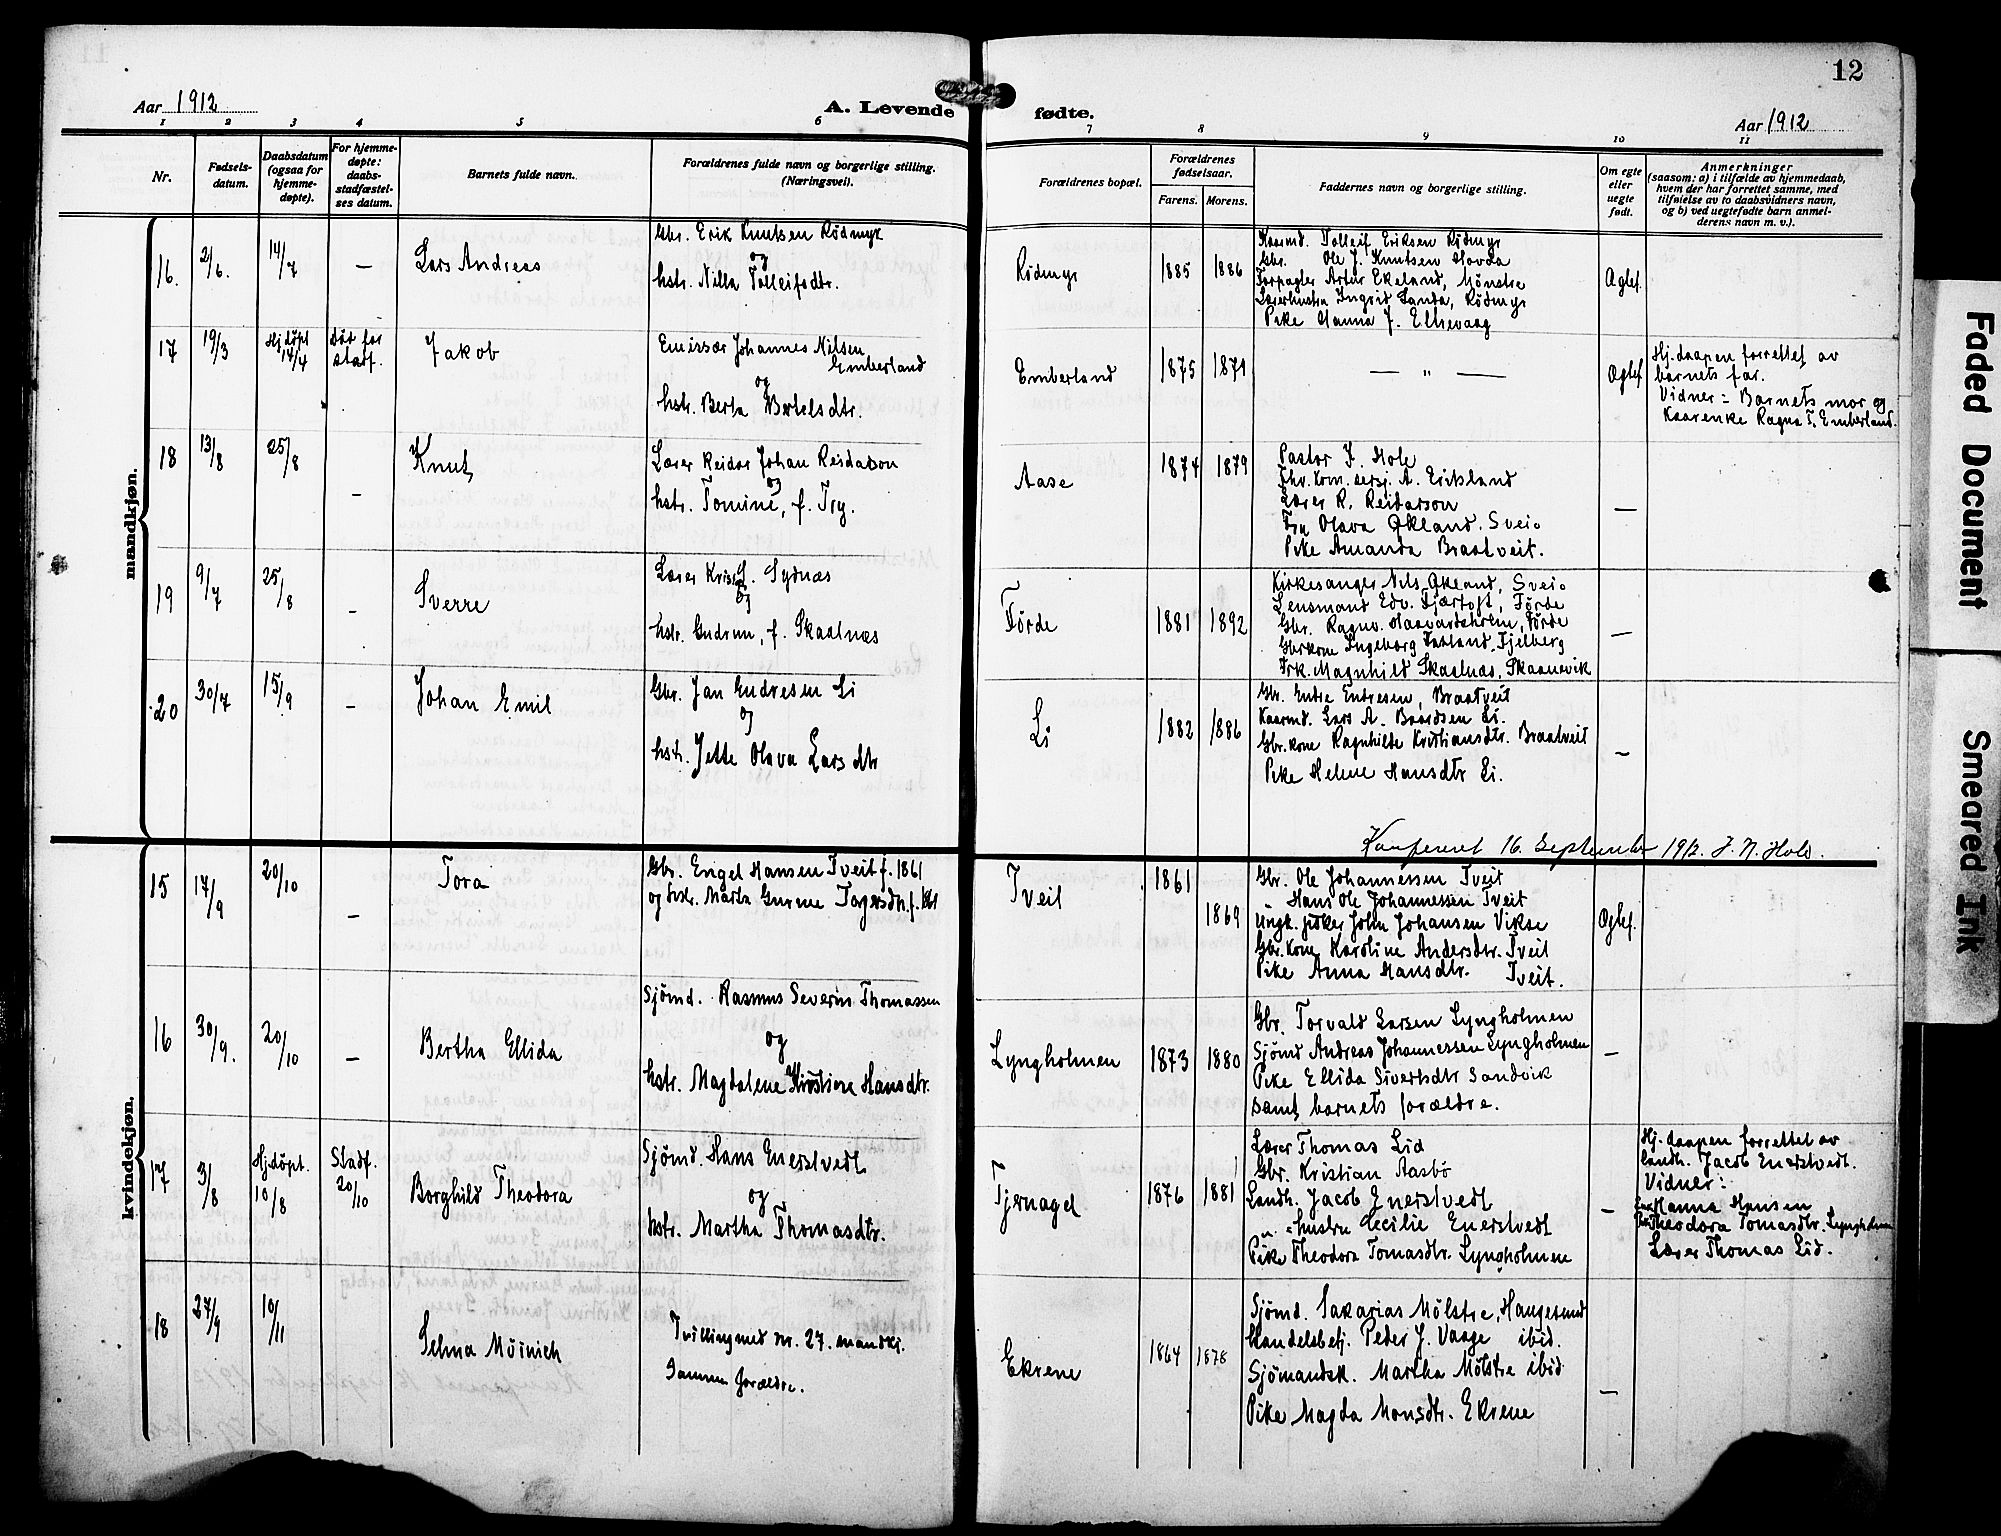 12
Aar 1912
A. Levende fødte.
Aar 1912
1 2 3 4 5 6 7 8 9 10 11
Nr.
Fødsels-
datum.
Daabsdatum
(ogsaa for
hjemme-
døpte).
For hjemme-
døpte:
daabs-
stadfæstel-
ses datum.
Barnets fulde navn.
Forældrenes fulde navn og borgerlige stilling.
(Næringsvei).
Forældrenes bopæl.
Forældrenes
fødselsaar.
Farens. Morens.
Faddernes navn og borgerlige stilling.
Om egte
eller
uegte
født.
Anmerkninger
(saasom: a) i tilfælde av hjemmedaab,
hvem der har forrettet samme, med
tilføielse av to daabsvidners navn,
og b) ved uegtefødte barn anmel-
derens navn m. v.).
mandkjøn.
16.
2/6.
14/7
—
Lars Andreas
Gbr. Erik Knutsen Rödmyr
og
hstr. Nilla Tolleifsdtr.
Rödmyr
1885
1886
Kaarmd. Tolleif Eriksen Rödmyr
Gbr. Ole J. Knutsen Hovda
Forpagter Artur Ekeland, Mönstre
Lærerhustru Ingrid Sanda, Rödmyr
Pike Hanna J. Eltrevaag
Egtef.
17
19/3
Hj.döpt
14/4
Död før
stadf.
Jakob
Emissær Johannes Nilsen
Emberland
og
hstr. Berta Bertelsdtr.
Emberland
1875
1871
— " —
Egtef
Hj.daapen forrettet av
barnets far.
Vidner: Barnets mor og
Kaarenke Ragna T. Emberland.
18
13/8
25/8
-
Knut
Lærer Reidar Johan Reidarson
og
hstr. Tomine, f. Try.
Aase
1874
1879
Pastor J. Hole
Thv. Kom. sergj. A. Eriksland
Lærer R. Reidarson
Fru Olava Økland. Sveio
Pike Amanda Braatveit.
—
19
9/7
25/8
-
Sverre
Lærer Krist. S. Sydnæs
og
hstr. Gudrun, f. Skaalnæs
Förde
1881
1892
Kirkesanger Nils Økland, Sveio
Lensmand Edv. Fjærtoft, Förde
Gbr. Ragnv. Haavardsholm, Förde
Gbrkone Ingeborg Fatland, Fjelberg
Frk. Magnhild Skaalnæs, Skaanevik
—
20
30/7
15/9
-
Johan Emil
Gbr. Jan Endresen Li
og
hstr. Jette Olava Larsdtr
Li
1882
1886
Gbr. Endre Endresen, Braatveit
Kaarmd. Lars A. Baardsen Li.
Gbr.kone Ragnhilde Kristiansdtr. Braatveit
Pike Helene Hansdtr Li.
—
Konfereret 16. September 1912. J. N. Hole.
kvindekjøn.
15
17/9
20/10
-
Tora
Gbr. Engel Hansen Tveit f. 1861
og hstr. Marta Gurine Torgersdtr. f.
Tveit
1861
1869
Gbr. Ole Johannessen Tveit
" Hans Ole Johannessen Tveit
Ungk. fisker John Johansen Vikse
Gbr. Kone Karoline Andersdtr. Tveit
Pike Anna Hansdtr. Tveit.
Egtef.
16
30/9.
20/10
-
Bertha Ellida
Sjömd. Rasmus Severin Thomassen
og
hstr. Magdalene Kirstine Hansdtr.
Lyngholmen
1873
1880
Gbr. Torvald Larsen Lyngholmen
Sjömd Andreas Johannessen Lyngholmen
Pike Ellida Sivertsdtr Sandvik
samt barnets forældre.
—
17
3/8
Hjdöpt.
10/8
Stadf.
20/10
Borghild Theodora
Sjömd. Hans Enerstvedt
og
hstr. Martha Thomasdtr.
Tjernagel
1876
1881
Lærer Thomas Lid
Gbr. Kristian Aasbö
Landh. Jacob Enerstvedt
" hustru Cecilie Enerstvedt
Pike Theodora Tomasdtr. Lyngholmen
—
Hj.daapen forrettet av
landh. Jacob Enerstvedt.
Vidner:
Hanna Hansen
Theodora Tomasdtr. Lyngholmen
Lærer Thomas Lid.
18
27/9
10/11
Selma Möinich
Tvilling med nr. 27. mandkj.
Samme forældre.
Ekrene
1864
1878
Sjömd. Sakarias Mölstre, Haugesund
Handelsbetj. Peder J. Vaage ibid.
Sjömandsk. Martha Mölstre ibid
Pike Magda Monsdtr. Ekrene
—
Faded Document
Smeared Ink